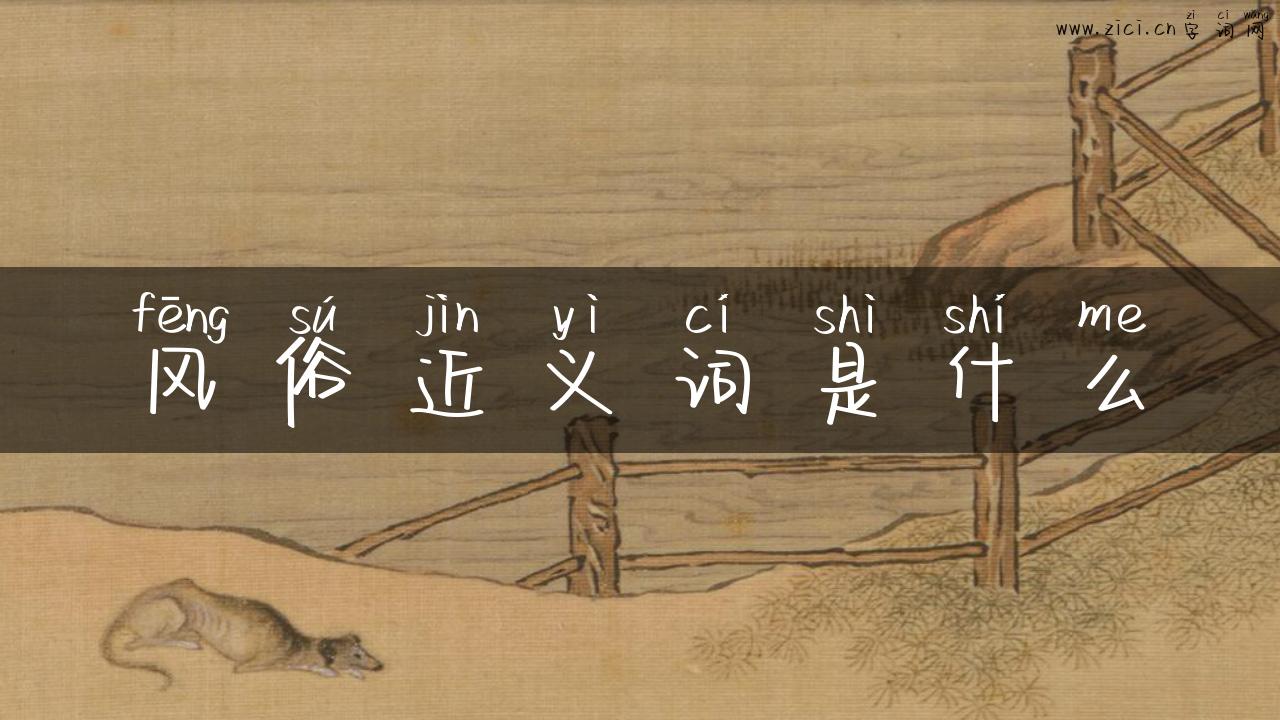 zì cí wǎng
www.zici.cn 字词网
fēng sú jìn yì cí shì shí me
风俗近义词是什么